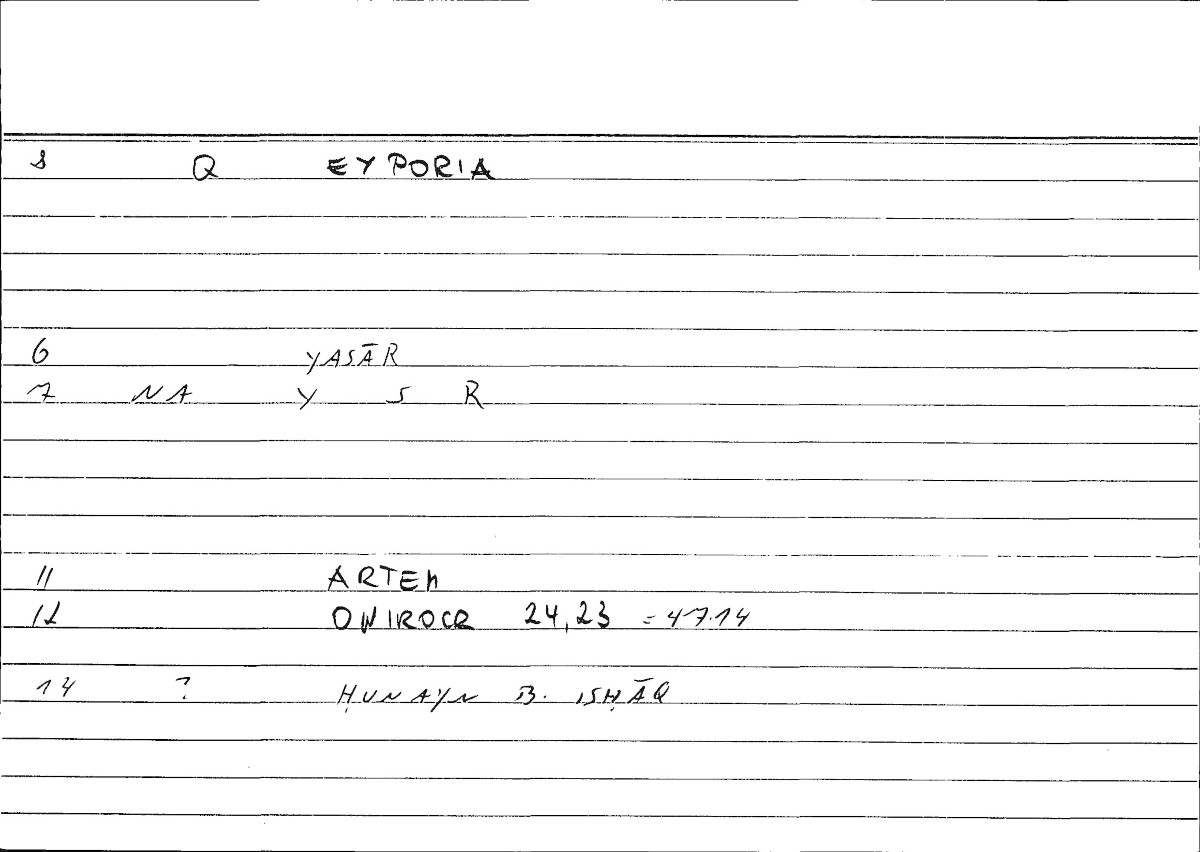 1 Q EYPORIA
6 YASĀR
7 NA Y S R
11 ARTEM
12 ONIROCR 24,23 = 47.14
14 ? ḤUNAYN B. ISḤĀQ